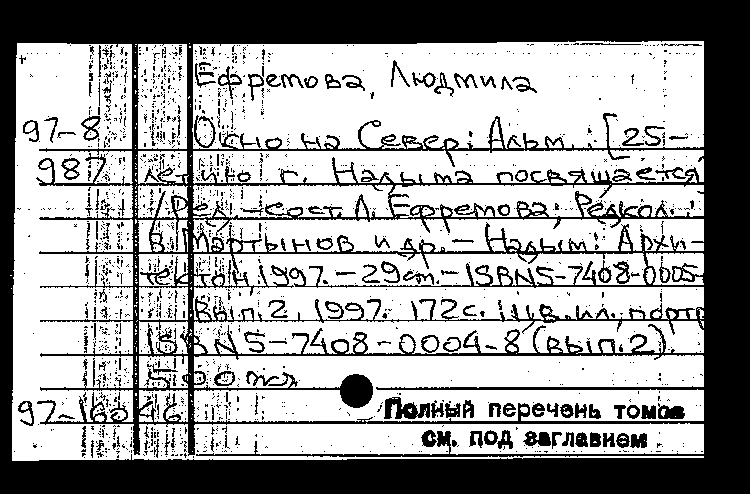 Ефремова, Людмила
97-8 Окно на Север: Альм. : [25-
987 летию г. Надыма посвящается
/Ред.-сост. Л. Ефремова; Редкол.:
В. Мартынов и др. - Надым: Архи-
тектон, 1997. - 29 см. - ISBN 5-7408-0005-
Вып. 2, 1997. 172 с. : цв. ил., портр
ISBN 5-7408-0004-8 (вып. 2).
500
97-16046
Полный перечень томов
см. под заглавием